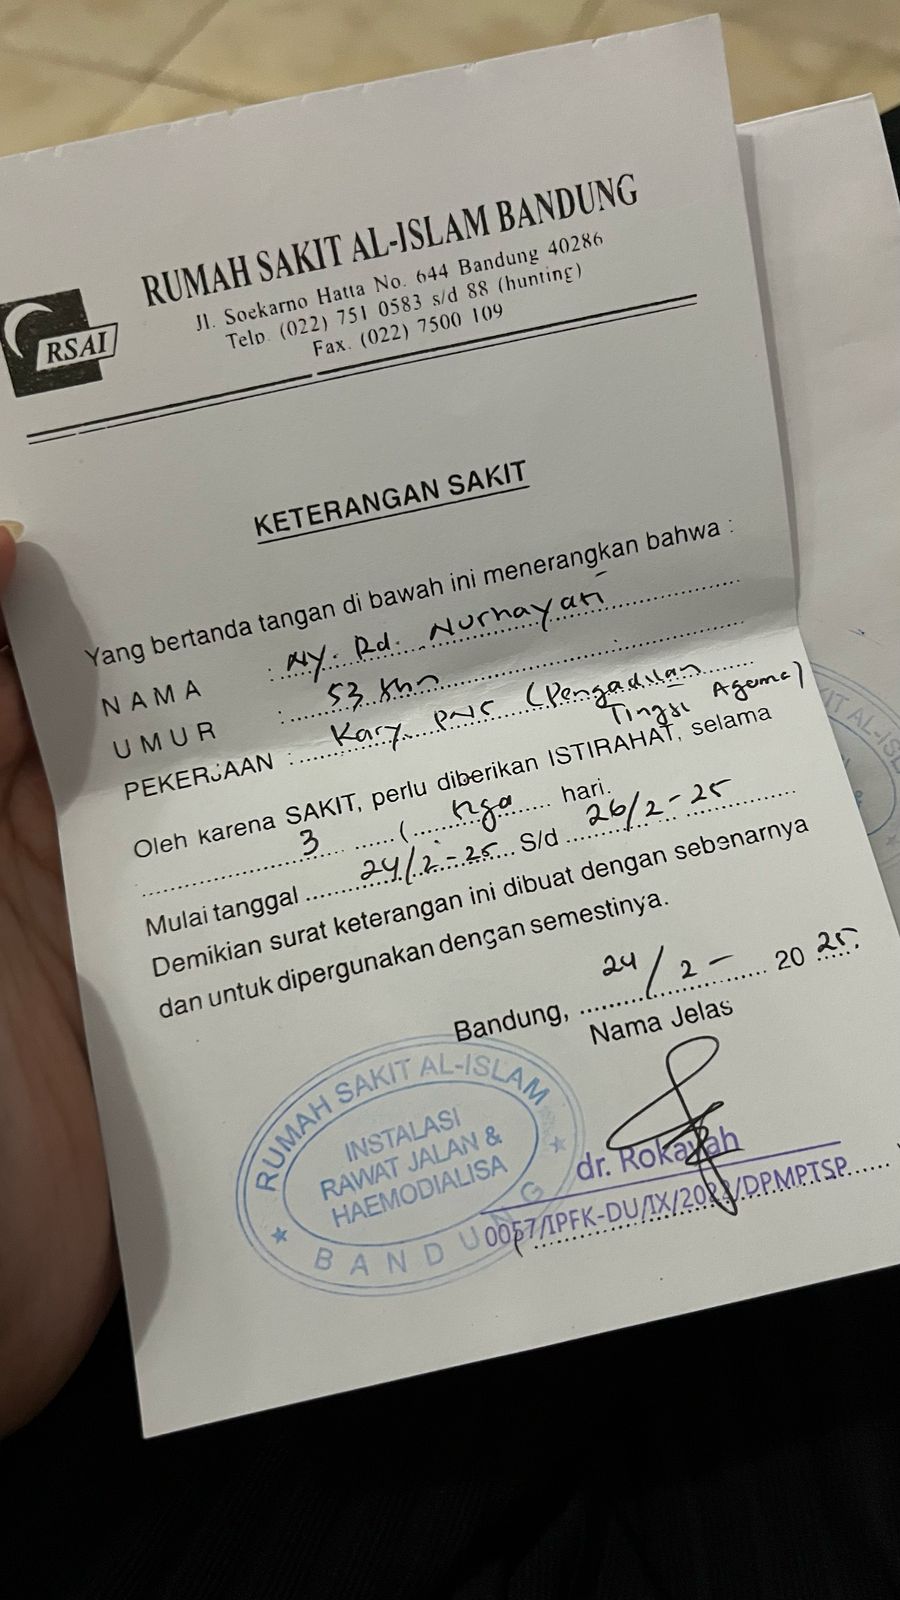 RUMAH SAKIT AL-ISLAM BANDUNG
Jl. Soekarno Hatta No. 644 Bandung 40286
Telp. (022) 751 0583 s/d 88 (hunting)
Fax. (022) 7500 109
RSAI
KETERANGAN SAKIT
Yang bertanda tangan di bawah ini menerangkan bahwa :
NAMA : Ny. Rd. Nurhayati
UMUR : 53 thn
PEKERJAAN : Kary. PNS (Pengadilan
Tinggi Agama)
Oleh karena SAKIT, perlu diberikan ISTIRAHAT, selama
3 ( tiga hari.
Mulai tanggal 24/2-25 S/d 26/2-25
Demikian surat keterangan ini dibuat dengan sebenarnya
dan untuk dipergunakan dengan semestinya.
Bandung, 24/2- 2025.
Nama Jelas
RUMAH SAKIT AL-ISLAM
INSTALASI
RAWAT JALAN &
HAEMODIALISA
BANDUNG
dr. Rokayah
0057/IPFK-DU/IX/2022/DPMPTSP